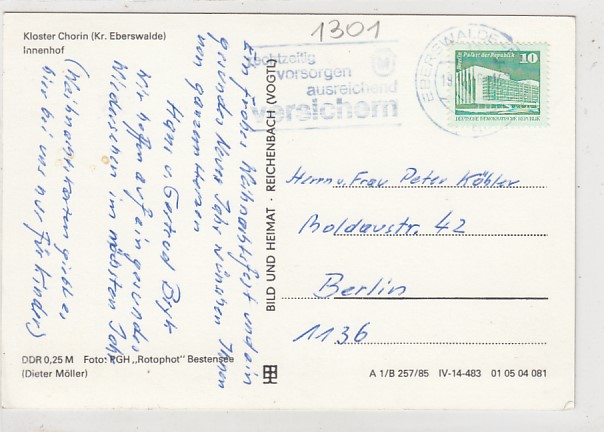 Kloster Chorin (Kr. Eberswalde)
Innenhof
1301
rechtzeitig
vorsorgen
ausreichend
versichern
EBERSWALDE
Berlin, Palast der Republik
10
DEUTSCHE DEMOKRATISCHE REPUBLIK
Ein frohes Weihnachtsfest und ein
gesundes Neues Jahr wünschen Ihnen
von ganzem Herzen
Hans u. Gertrud
Wir hoffen auf ein gesundes
Wiedersehen im nächsten Jahr
(Weihnachtskarten gibt es
hier bei uns nur für Kinder)
BILD UND HEIMAT · REICHENBACH (VOGTL)
Herrn u. Frau Peter Köhler
Moldaustr. 42
Berlin
1136
DDR 0,25 M Foto: PGH „Rotophot" Bestensee
(Dieter Möller)
A 1/B 257/85 IV-14-483 01 05 04 081